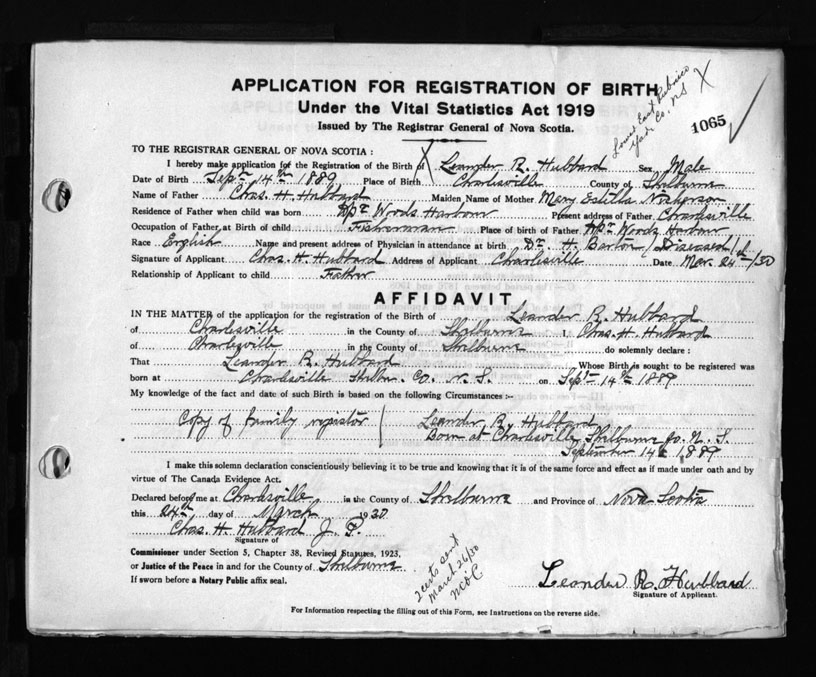 APPLICATION FOR REGISTRATION OF BIRTH
Under the Vital Statistics Act 1919
Issued by The Registrar General of Nova Scotia.
Lower East Pubnico
Yar. Co. N S
X
1065
TO THE REGISTRAR GENERAL OF NOVA SCOTIA :
I hereby make application for the Registration of the Birth of Leander R. Hubbard Sex Male
Date of Birth Sept 14th 1889 Place of Birth Charlesville County of Shelburne
Name of Father Chas. H. Hubbard Maiden Name of Mother Mary Nickerson
Residence of Father when child was born Woods Harbour Present address of Father Charlesville
Occupation of Father at Birth of child Fisherman Place of birth of Father Woods Harbour
Race English Name and present address of Physician in attendance at birth Dr. H. Barton
Signature of Applicant Chas. H. Hubbard Address of Applicant Charlesville Date Mar. 24th/30
Relationship of Applicant to child Father
AFFIDAVIT
IN THE MATTER of the application for the registration of the Birth of Leander R. Hubbard
of Charlesville in the County of Shelburne I, Chas. H. Hubbard
of Charlesville in the County of Shelburne do solemnly declare :
That Leander R. Hubbard Whose Birth is sought to be registered was
born at Charlesville Co. N. S. on Sept 14th 1889
My knowledge of the fact and date of such Birth is based on the following Circumstances :-
Copy of family registor Leander R. Hubbard
Born at Charlesville, Shelburne Co. N. S.
September 14th 1889
I make this solemn declaration conscientiously believing it to be true and knowing that it is of the same force and effect as if made under oath and by
virtue of The Canada Evidence Act.
Declared before me at Charlesville in the County of Shelburne and Province of Nova Scotia
this 24th day of March 1930
Chas. H. Hubbard J. P.
Signature of
Commissioner under Section 5, Chapter 38, Revised Statutes, 1923,
or Justice of the Peace in and for the County of Shelburne
If sworn before a Notary Public affix seal.
2 certs sent
March 26/30
Leander R. Hubbard
Signature of Applicant.
For Information respecting the filling out of this Form, see Instructions on the reverse side.